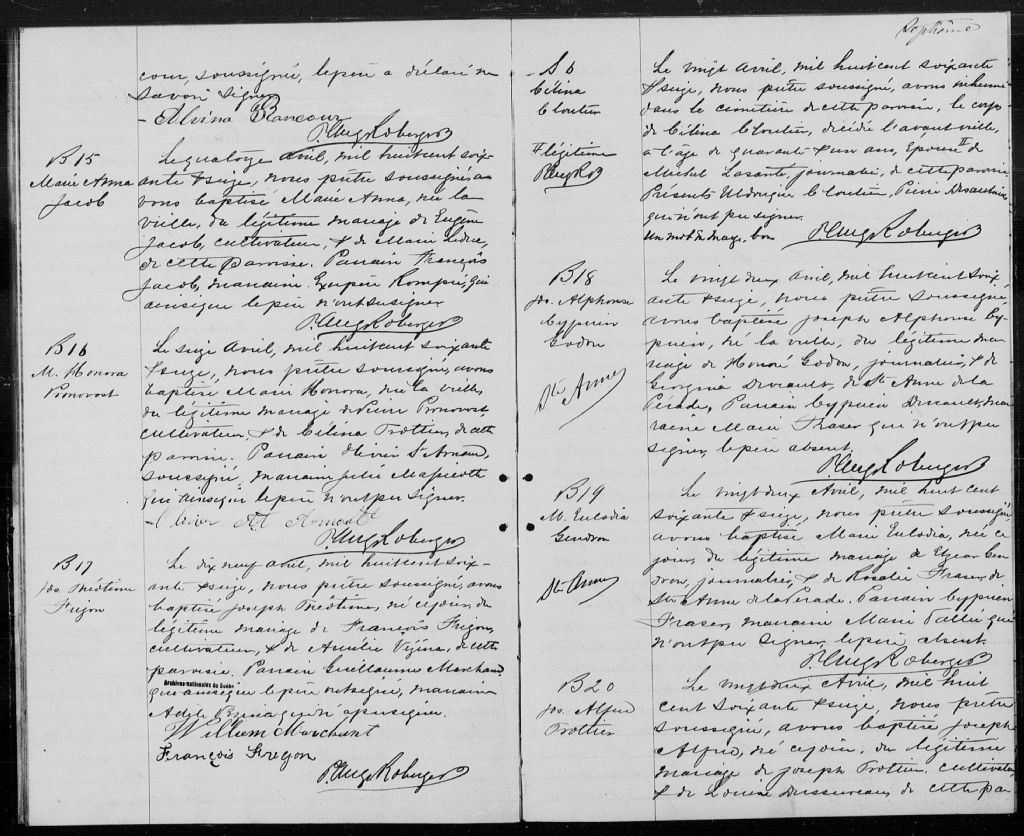 cour, soussignée, le père a déclaré ne
savoir signer.
- Alvina Rancour
P. Aug Roberge
B 15
Marie Anna
Jacob
Le quatorze avril, mil huit cent soix-
ante & seize, nous prêtre soussigné a-
vons baptisé Marie Anna, née la
veille, du légitime mariage de Eugène
Jacob, cultivateur, & de Marie Leduc,
de cette paroisse. Parrain François
Jacob, marraine Exupère Rompré, qui
ainsi que le père n'ont su signer
P. Aug Roberge
B 16
M. Honora
Pronovost
Le seize Avril, mil huit cent soixante
& seize, nous prêtre soussigné, avons
baptisé Marie Honora, née la veille,
du légitime mariage de Pierre Pronovost
cultivateur, & de Célina Trottier, de cette
paroisse. Parrain Olivier St Arnaud,
soussigné, marraine Julie Massicotte
qui ainsi que le père n'ont pu signer.
P. Aug Roberge
B 17
Jos. Théotime
Frigon
Le dix neuf avril, mil huit cent soix-
ante & seize, nous prêtre soussigné, avons
baptisé Joseph Théotime, né ce jour, du
légitime mariage de François Frigon,
cultivateur, & de Amélie Vézina, de cette
paroisse. Parrain Guillaume Marchand
Archives nationales du Québec
qui ainsi que le père ont signé, marraine
Adèle qui n'a pu signer.
William Marchant
François Fregon
P. Aug Roberge
Septième
S 6
Célina
Cloutier
# légitime
P. Aug R
Le vingt Avril, mil huit cent soixante
& seize, nous prêtre soussigné, avons inhumé
dans le cimetière de cette paroisse, le corps
de Célina Cloutier, décédée l'avant veille,
à l'âge de quarante & un ans, Epouse #
Michel Lasanté, journalier, de cette paroisse
Présents Uldorique Cloutier, Pierre Desaulniers,
qui n'ont pu signer.
Un mot en marge, bon P. Aug Roberge
B 18
Jos. Alphonse
Cyprien
Godon
Ste Anne
Le vingt deux Avril, mil huit cent soix-
ante & seize, nous prêtre soussigné,
avons baptisé Joseph Alphonse Cy-
prien, né la veille, du légitime ma-
riage de Honoré Godon, journalier, & de
Georgina Devault, de Ste Anne de la
Pérade, Parrain Cyprien Devault, mar-
raine Marie Fraser qui n'ont pu
signer, le père absent.
P. Aug Roberge
B 19
M. Eulodia
Gendron
Ste Anne
Le vingt deux Avril, mil huit cent
soixante & seize, nous prêtre soussigné,
avons baptisé Marie Eulodia, née ce
jour, du légitime mariage de Elzear Gen-
dron, journalier, & de Rosalie Fraser, de
Ste Anne de la Pérade. Parrain Cyprien
Fraser, marraine Marie Vallée qui
n'ont pu signer, le père absent.
P. Aug Roberge
B 20
Jos. Alfred
Trottier
Le vingt deux Avril, mil huit
cent soixante & seize, nous prêtre
soussigné, avons baptisé Joseph
Alfred, né ce jour, du légitime
mariage de Joseph Trottier, cultivateur
& de Louise Dussureau, de cette pa-